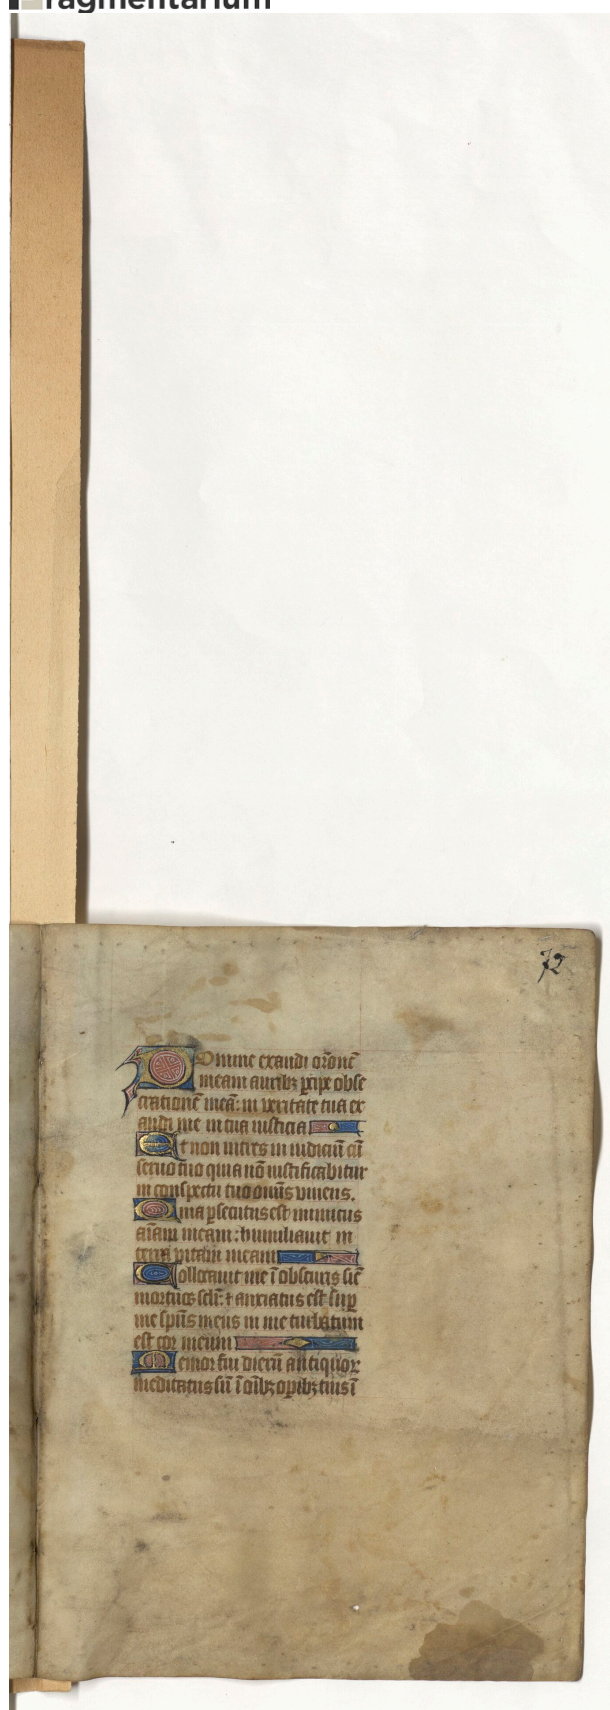 ragmentarium
72
Domine exaudi or̄onē
meam auribꝫ ꝑcipe obse
crationē meā: in veritate tua ex
audi me in tua iusticia
Et non intres in iudiciū cū
seruo tuo quia nō iustificabitur
in conspectu tuo om̄s viuens.
Quia ꝑsecutus est inimicus
aīam meam: humiliauit in
terra vitam meam
Collocauit me ī obscuris sic̄
mortuos sc̄li: ⁊ anxiatus est suꝑ
me sp̄us meus in me turbatum
est cor meum
Memor fui dierū antiquoꝝ
meditatus sū ī oībꝫ oꝑibꝫ tuis ī